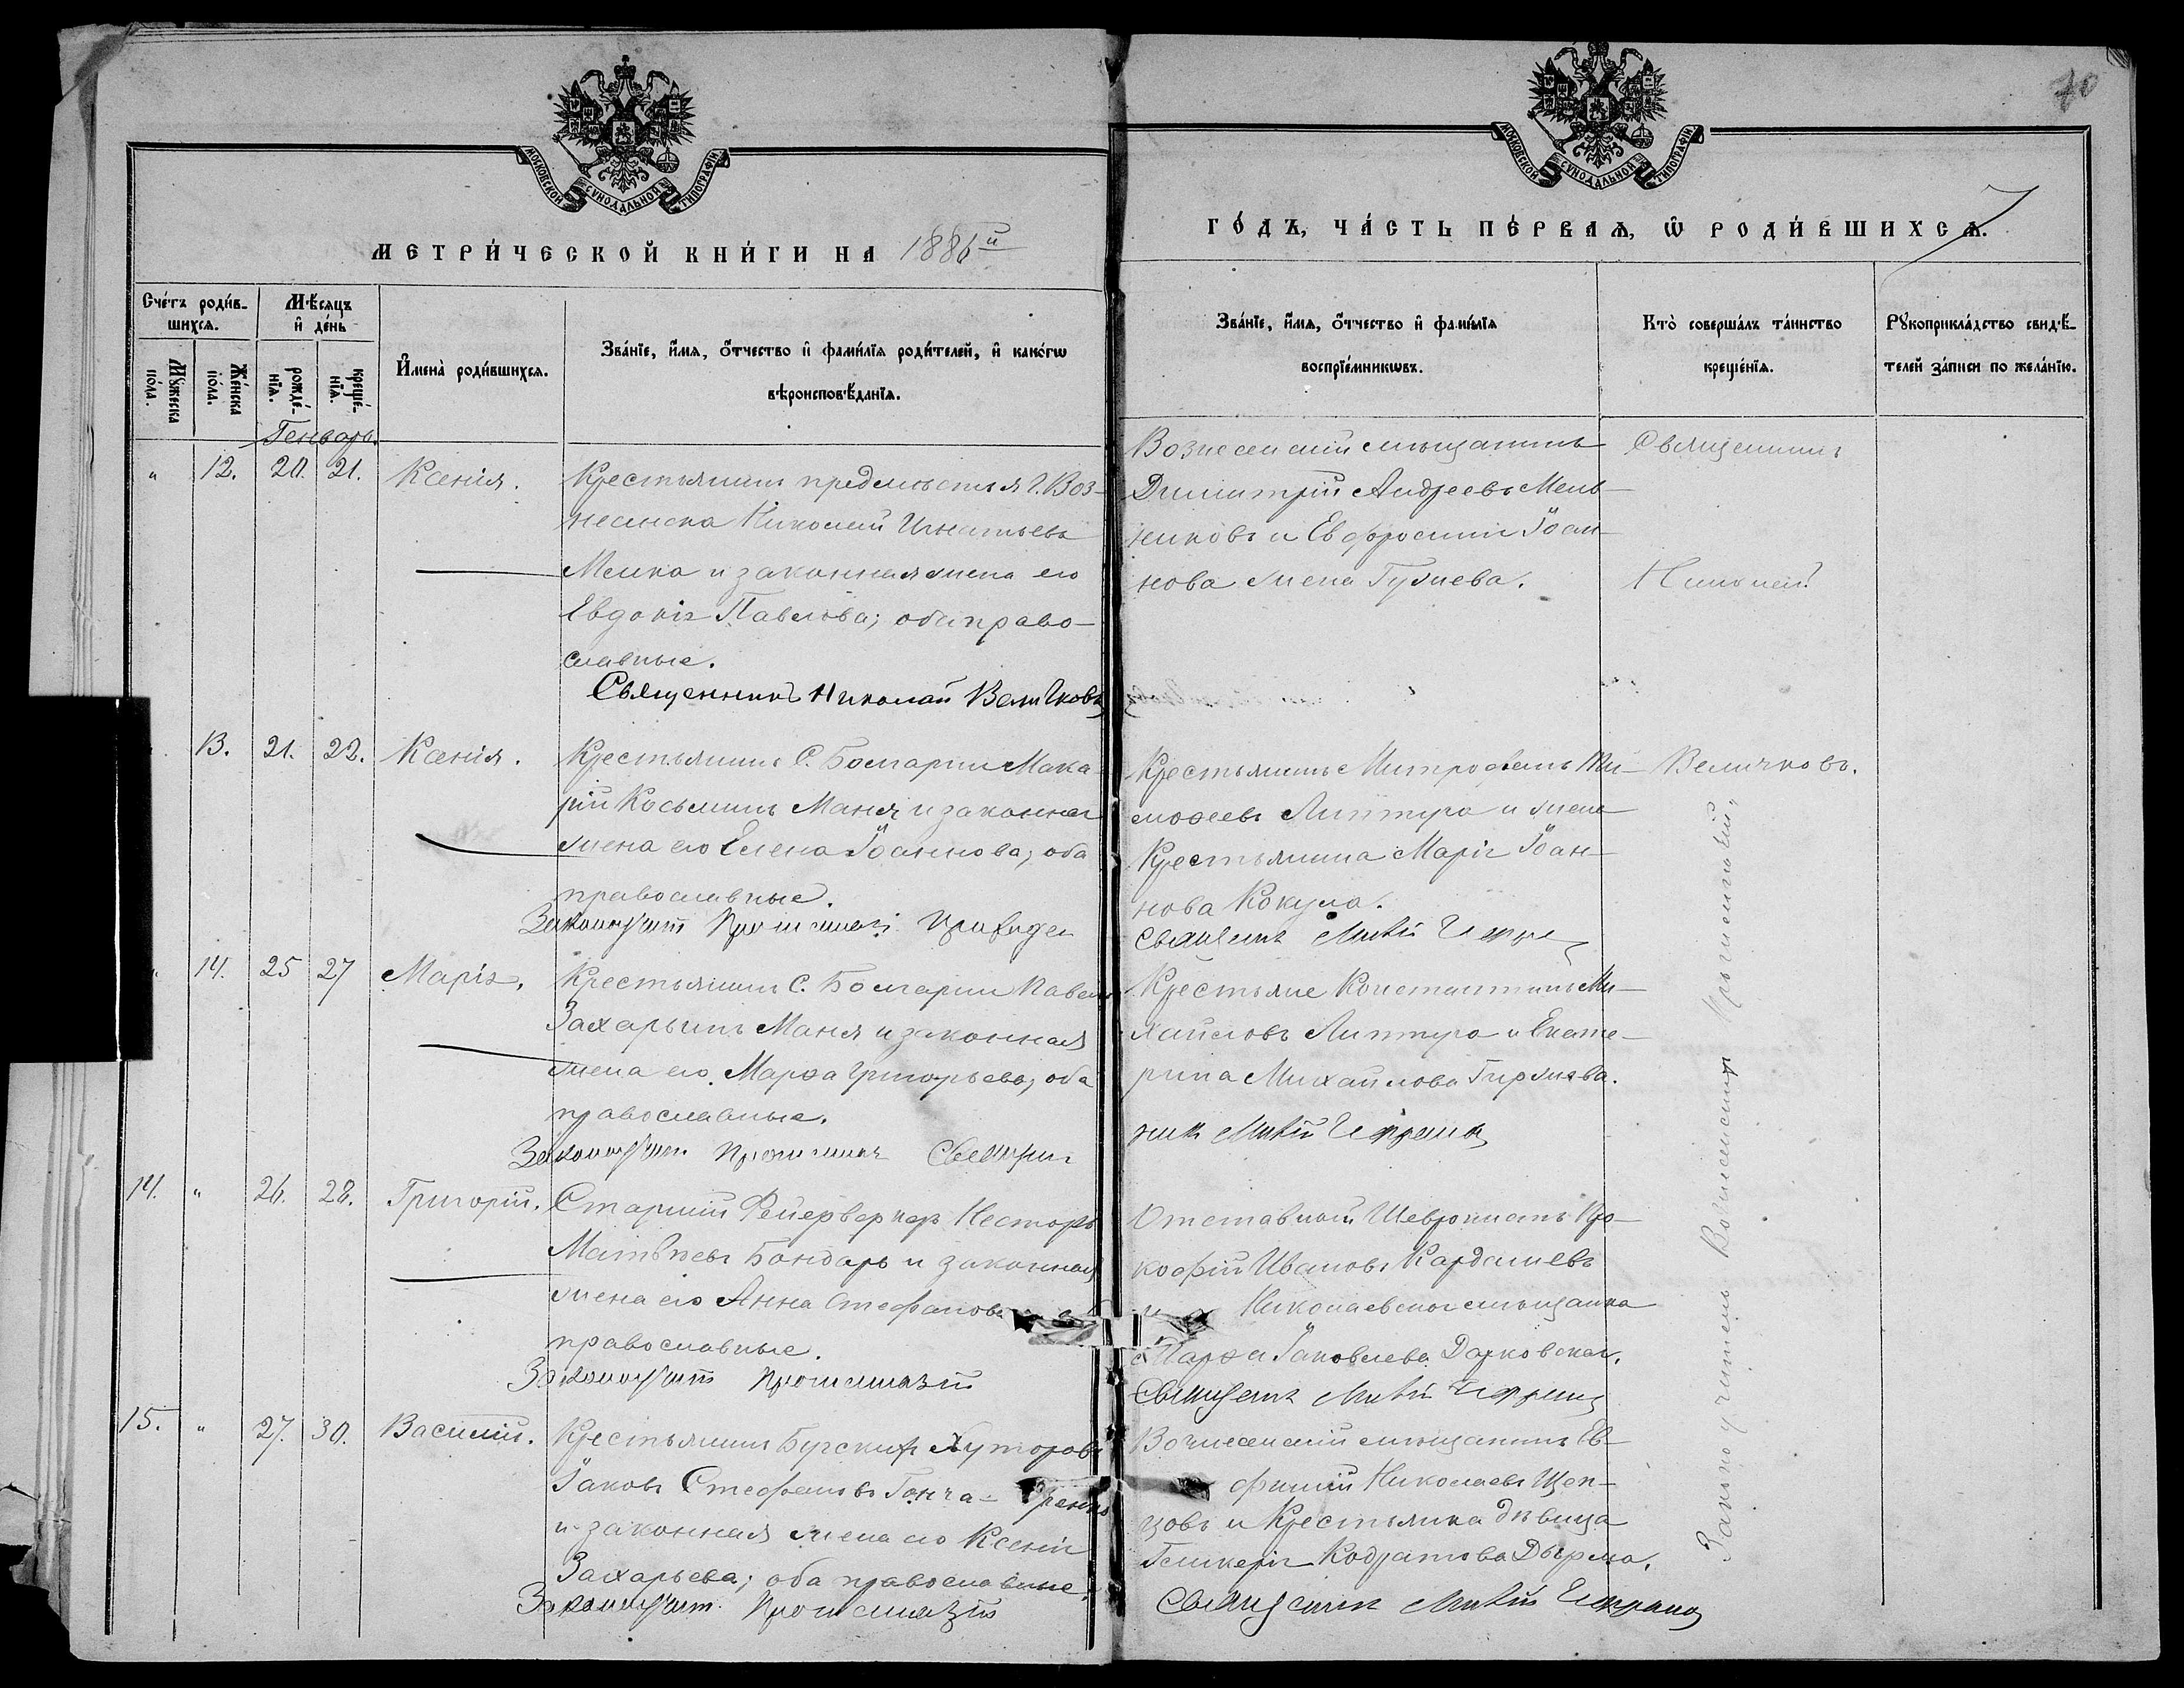 МОСКОВСКОЙ СѴНОДАЛЬНОЙ ТИПОГРАФІИ
МЕТРИ́ЧЕСКОЙ КНИ́ГИ НА 1886й
Сче́тъ роди́в-
шихсѧ.
Мꙋ́жеска
по́ла.
Же́нска
по́ла.
Мѣ́сѧцъ
и҆ де́нь
рожде́-
нїѧ.
креще́-
нїѧ.
И҆мена̀ роди́вшихсѧ.
Зва́нїе, и҆́мѧ, ѻ҆́тчество и҆ фами́лїѧ роди́телей, и҆ како́гѡ
вѣроисповѣ́данїѧ.
Генварь.
" 12. 20. 21. Ксенія.
Крестьянинъ предмѣстья г. Воз-
несенска Николай Игнатьевъ
и законная жена его
Евдокія Павлова; оба право-
славные.
Священникъ Николай Величковъ
13. 21. 22. Ксенія.
Крестьянинъ С. Болгарки Мака-
рій Косьминъ Маня и законная
жена его Елена Іоаннова; оба
православные.
Законоучит
14. 25 27 Марія.
Крестьянинъ С. Болгарки Павелъ
Захарьинъ Маня и законная
жена его Марѳа Григорьева; оба
православные.
Законоучит
14. " 26. 28. Григорій.
Старшій Фейерверкеръ Несторъ
Матвѣевъ Бондарь и законная
жена его Анна Стефанова
православные.
Законоучит
15. " 27. 30. Василій.
Крестьянинъ Бугскихъ Хуторовъ
Іаковъ Стефановъ Гонча-ренко
и законная жена его Ксенія
Захарьева; оба православные.
Законоучит.
70
МОСКОВСКОЙ СѴНОДАЛЬНОЙ ТИПОГРАФІИ
7
ГО́ДЪ, ЧА́СТЬ ПЕ́РВАѦ, Ѡ҆ РОДИ́ВШИХСѦ.
Зва́нїе, и҆́мѧ, ѻ҆́тчество и҆ фами́лїѧ
воспрїе́мникѡвъ.
Кто̀ соверша́лъ та́инство
креще́нїѧ.
Рꙋкоприкла́дство свидѣ́-
телей за́писи по жела́нїю.
Вознесенскій мѣщанинъ
Димитрій Андреевъ Мель-
никовъ и Евфросинія Іоан-
нова жена Гуляева.
Священникъ
Николай
Крестьянинъ Митрофанъ Ти-
моѳеевъ Липтуга и жена
Крестьянина Марія Іоан-
нова Кокула.
Священ
Величковъ.
Крестьяне Константинъ Ми-
хайловъ Липтуга и Екате-
рина Михайлова
никъ
Отставной Прo-
кофій Ивановъ Кардашевъ
и Николаевская мѣщанка
Марѳа Іаковлева
Священ
Вознесенскій мѣщанинъ Ев-
фимій Николаевъ Щеп-
цовъ и Крестьянка дѣвица
Гликерія Кодратова
Священник
Законоучитель